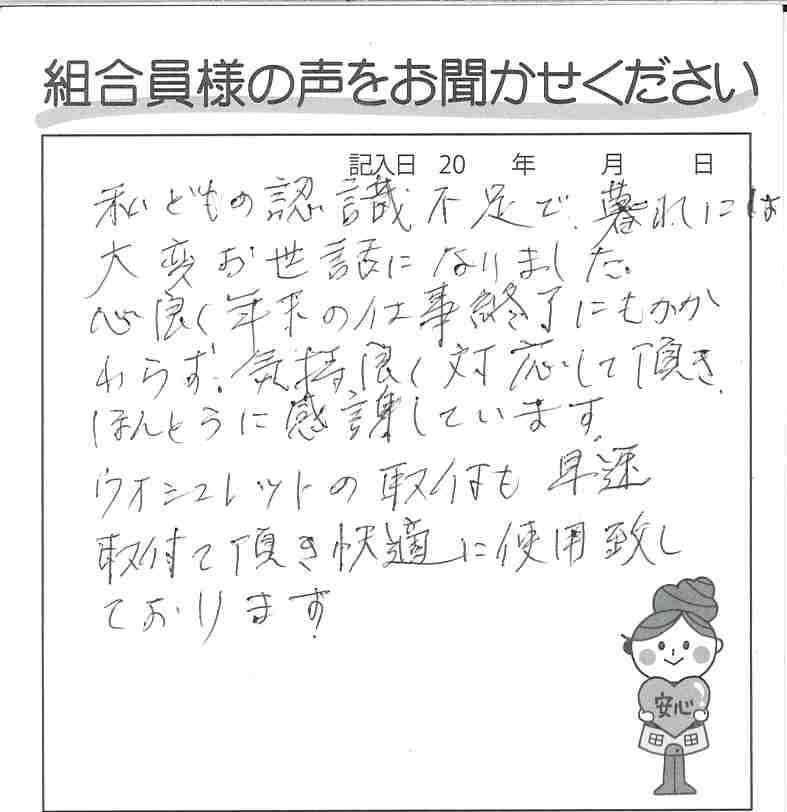 組合員様の声をお聞かせください
記入日 20 年 月 日
私どもの認識不足で、暮れには
大変お世話になりました。
心良く年末の仕事終了にもかか
わらず、気持良く対応して頂き
ほんとうに感謝しています。
ウオシュレットの取付も早速
取付て頂き快適に使用致し
ております。
安心